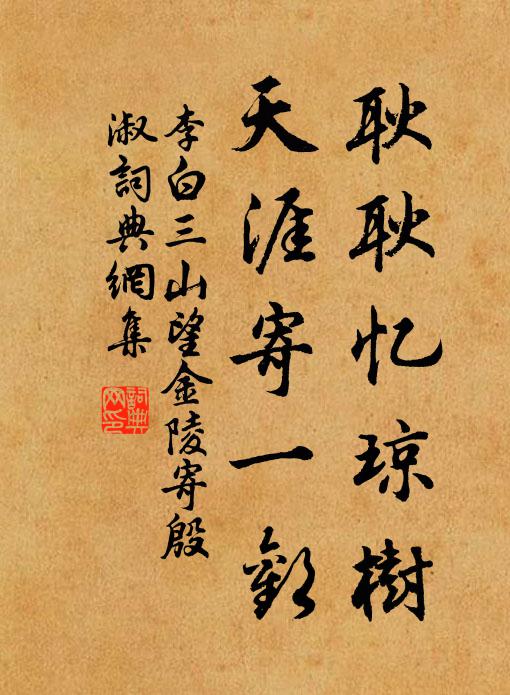 耿耿忆琼樹
天涯寄一歡
李白三山望金陵寄殷
淑詞典網集
詞典
网印